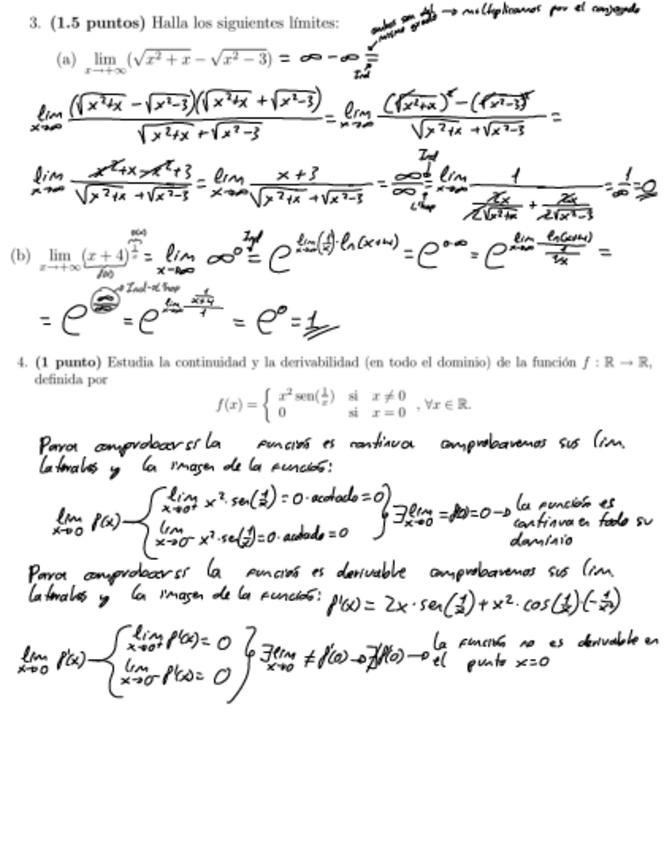 3. (1.5 puntos) Halla los siguientes límites:
ambos son → multiplicamos por el conjugado
mismo grado
(a) lim x→+∞ (√(x²+x) − √(x²−3)) = ∞ − ∞ =
Ind
lim x→∞ (√(x²+x) − √(x²−3))(√(x²+x) + √(x²−3)) / (√(x²+x) + √(x²−3)) = lim x→∞ ((√(x²+x))² − (√(x²−3))²) / (√(x²+x) + √(x²−3)) =
lim x→∞ (x²+x−x²+3) / (√(x²+x) + √(x²−3)) = lim x→∞ (x+3) / (√(x²+x) + √(x²−3)) = ∞/∞ Ind = L'Hop lim x→∞ 1 / (2x/(2√(x²+x)) + 2x/(2√(x²−3))) = 1/∞ = 0
(b) lim x→+∞ (x+4)^(1/x) = lim x→∞ ∞⁰ Ind = e^(lim x→∞ (1/x)·ln(x+4)) = e^(0·∞) = e^(lim x→∞ ln(x+4)/(1/x)) =
= e^(∞/∞) → Ind → L'Hop = e^(lim x→∞ (1/(x+4))/1) = e⁰ = 1
4. (1 punto) Estudia la continuidad y la derivabilidad (en todo el dominio) de la función f : ℝ → ℝ,
definida por
f(x) = { x² sen(1/x) si x ≠ 0
0 si x = 0 , ∀x ∈ ℝ.
Para comprobar si la función es continua comprobaremos sus lim.
laterales y la imagen de la función:
lim x→0 f(x) → { lim x→0⁺ x²·sen(1/x) = 0·acotado = 0
lim x→0⁻ x²·sen(1/x) = 0·acotado = 0 } ∃ lim x→0 = f(0) = 0 → la función es
continua en todo su
dominio
Para comprobar si la función es derivable comprobaremos sus lim.
laterales y la imagen de la función: f'(x) = 2x·sen(1/x) + x²·cos(1/x)·(−1/x²)
lim x→0 f'(x) → { lim x→0⁺ f'(x) = 0
lim x→0⁻ f'(x) = 0 } ∃ lim x→0 ≠ f'(0) → ∄f'(0) → la función no es derivable en
el punto x=0